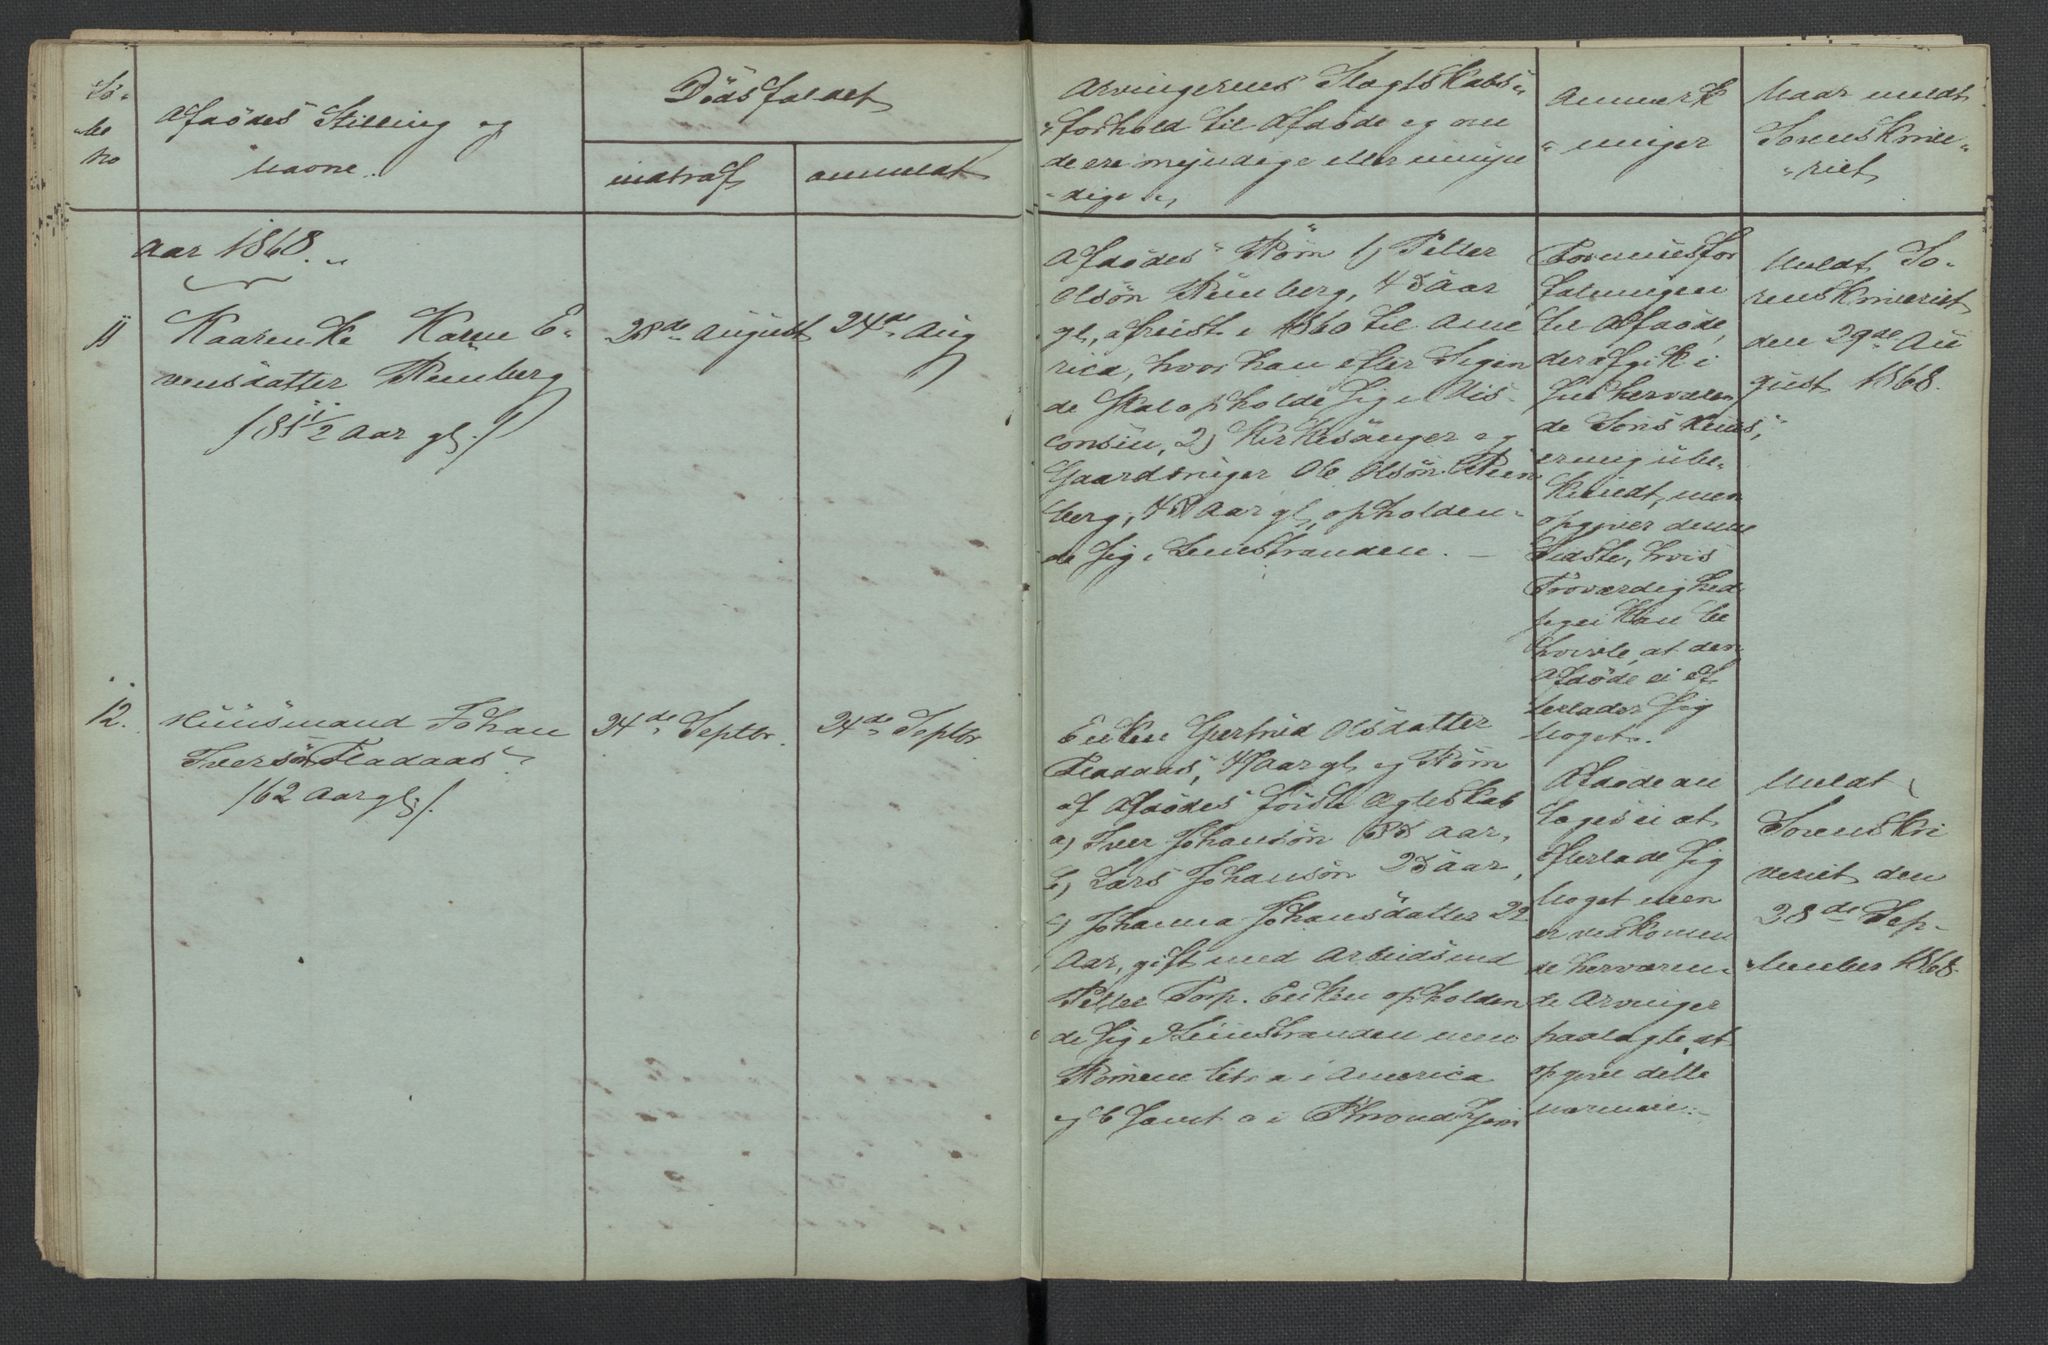 Lø-
be
No
Afdödes Stilling og
Navne.
Dödsfaldet
indtraf
anmeldt
Arvingernes Slægtskabs-
forhold til Afdöde og om
de ere myndige eller umyn
dige
Anmærk
ninger
Naar meldt
Sorenskrive-
riet
Aar 1868.
11
Kaarenke Karen E-
vensdatter Rimberg
/81 1/2 Aar gl./
28de August
24de Aug
Afdödes Börn 1) Petter
Olsön Rimberg, 48 Aar
gl, afreist i 1860 til Ame
rica, hvor han efter Sigen
de skal opholde sig i Vis-
consin, 2) Kirkesanger og
Gaardbruger Ole Olsön Rim
berg, 48 Aar gl, opholden-
de sig i Leinstranden. —
Formuesfor
fatningen
til Afdöde,
der afgik i
Huus herværen
de Söns Huus,
er mig ube-
kiendt, men
opgiver denne
Sidste, hvis
Troværdighed
jeg ei kan be
tvivle, at den
Afdöde ei ef
terlader sig
Noget.
Meldt So-
renskriveriet
den 29de Au
gust 1868.
12.
Huusmand Johan
Iversön Fladaas
/62 Aar gl./
24de Septbr.
24de Septbr
Enken Gertrud Olsdatter
Fladaas, 47 Aar gl, og Börn
af Afdödes förste Ægteskab
a) Iver Johansön 33 Aar,
b) Lars Johansön 28 Aar,
c) Johanna Johansdatter 22
Aar, gift med Arbeidsmd
Petter Torp. Enken opholden
de sig i Leinstranden men
Börnene litr a i America
og b samt c i Throndhjem
Afdöde an
tages ei at
efterlade sig
Noget men
er vedkommen
de herværen-
de Arvinger
paalagte at
opgive dette
nærmere.
Meldt
Sorenskri
veriet den
28de Sep-
tember 1868.